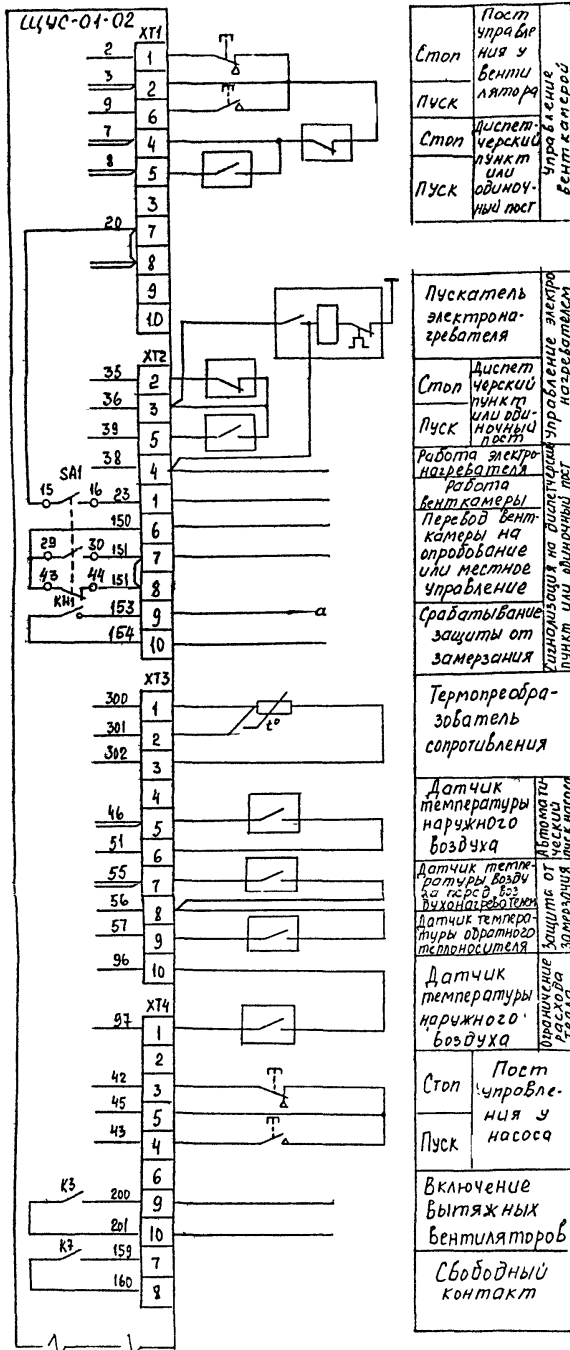 ЩУС-01-02
XT1
2 1
3 2
9 6
7 4
8 5
3
20 7
8
9
10
XT2
35 2
36 3
39 5
38 4
SA1
15 16 23 1
150 6
29 30 151 7
43 44 151 8
KH1 153 9
а
154 10
XT3
300 1
301 2
t°
302 3
4
46 5
51 6
55 7
56 8
57 9
96 10
XT4
97 1
2
42 3
45 5
43 4
6
K3 200 9
201 10
K7 159 7
160 8
Стоп
Пуск
Пост
управле
ния у
венти
лятора
Стоп
Пуск
Диспет-
черский
пункт
или
одиноч-
ный пост
Управление
венткамерой
Пускатель
электрона-
гревателя
Стоп
Пуск
Диспет
черский
пункт
или оди-
ночный
пост
Управление электро
нагревателем
Работа электро-
нагревателя
Работа
венткамеры
Перевод вент-
камеры на
опробование
или местное
управление
Срабатывание
защиты от
замерзания
Сигнализация на диспетчерский
пункт или одиночный пост
Термопреобра-
зователь
сопротивления
Датчик
температуры
наружного
воздуха
Автомати-
ческий
Датчик темпе-
ратуры возду
ха перед воз
духонагревателем
Датчик темпера-
туры обратного
теплоносителя
Защита от
замерзания
Датчик
температуры
наружного
воздуха
Ограничение
расхода
тепла
Стоп
Пуск
Пост
управле-
ния у
насоса
Включение
вытяжных
вентиляторов
Свободный
контакт